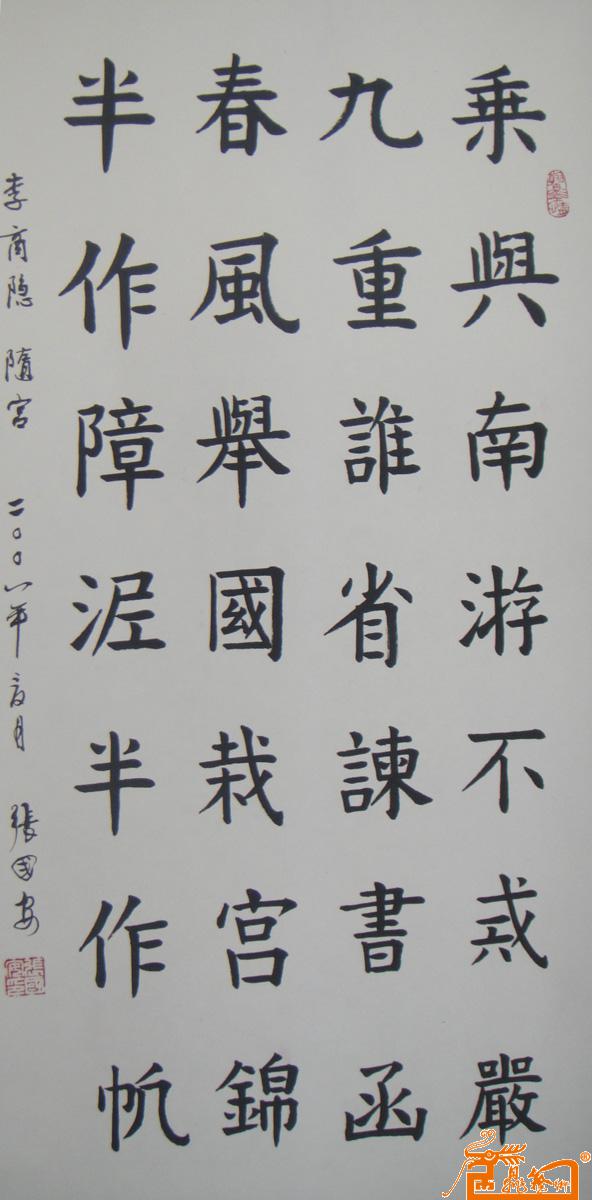 乗與南游不戒嚴
九重誰省諫書函
春風舉國栽宫錦
半作障泥半作帆
李商隐 隨宫 二〇〇八年 月 張國安